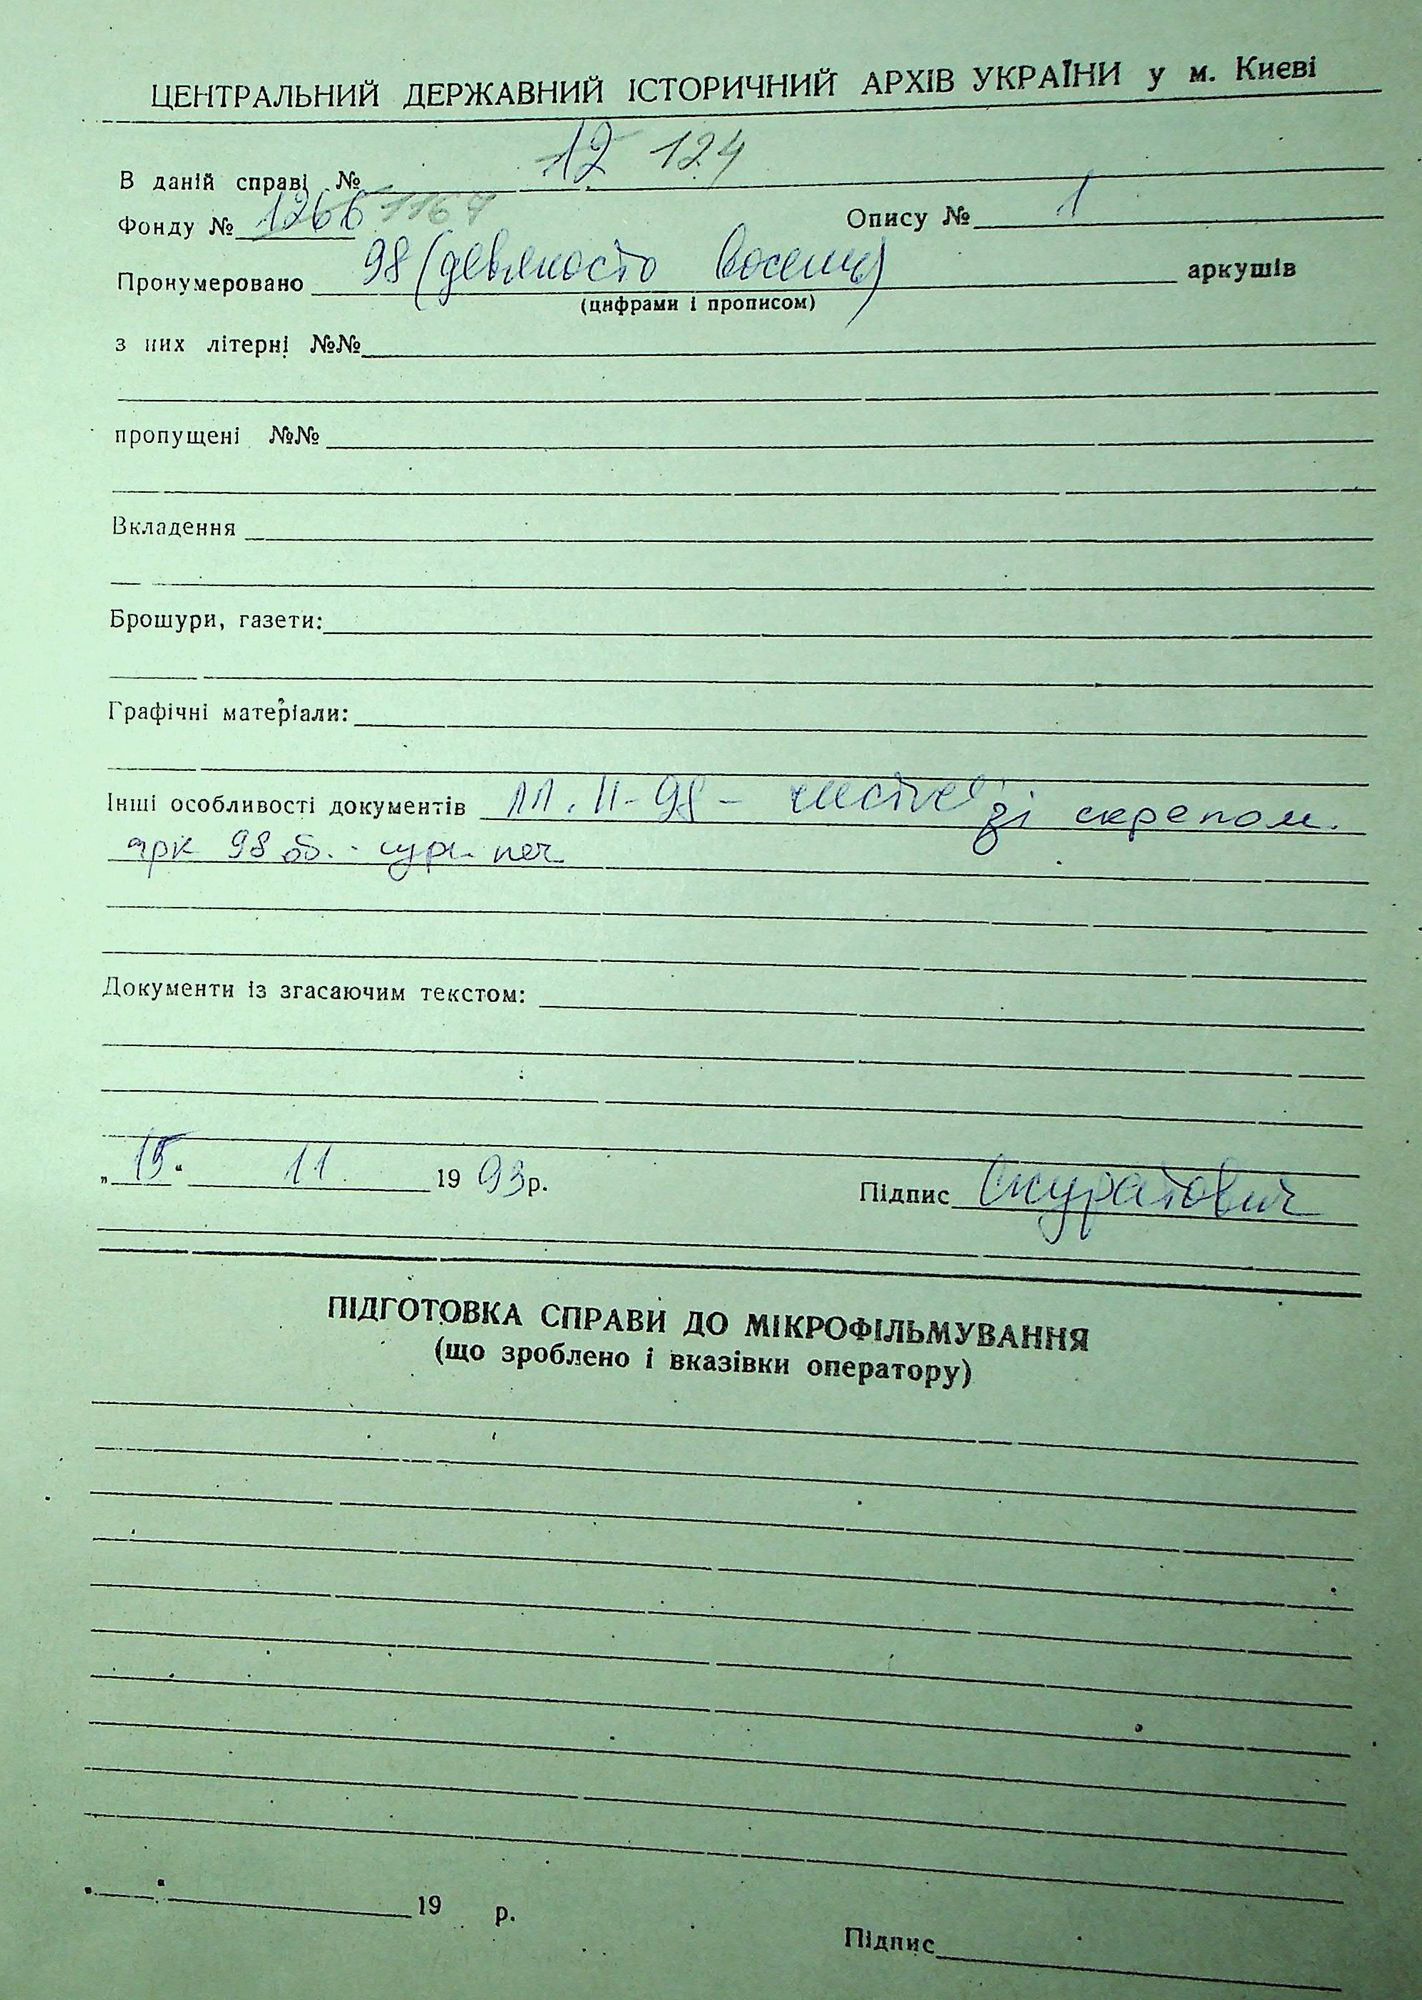 ЦЕНТРАЛЬНИЙ ДЕРЖАВНИЙ ІСТОРИЧНИЙ АРХІВ УКРАЇНИ у м. Києві
В даній справі № 12 124
Фонду № 1266 1167 Опису № 1
Пронумеровано 98 (девяносто восемь) аркушів
(цифрами і прописом)
з них літерні №№
пропущені №№
Вкладення
Брошури, газети:
Графічні матеріали:
Інші особливості документів 11-98 - зі скрепом.
арк 98 об. - сург. печ.
Документи із згасаючим текстом:
„15“ 11. 1993р.
Підпис Скуратович
ПІДГОТОВКА СПРАВИ ДО МІКРОФІЛЬМУВАННЯ
(що зроблено і вказівки оператору)
19 р.
Підпис